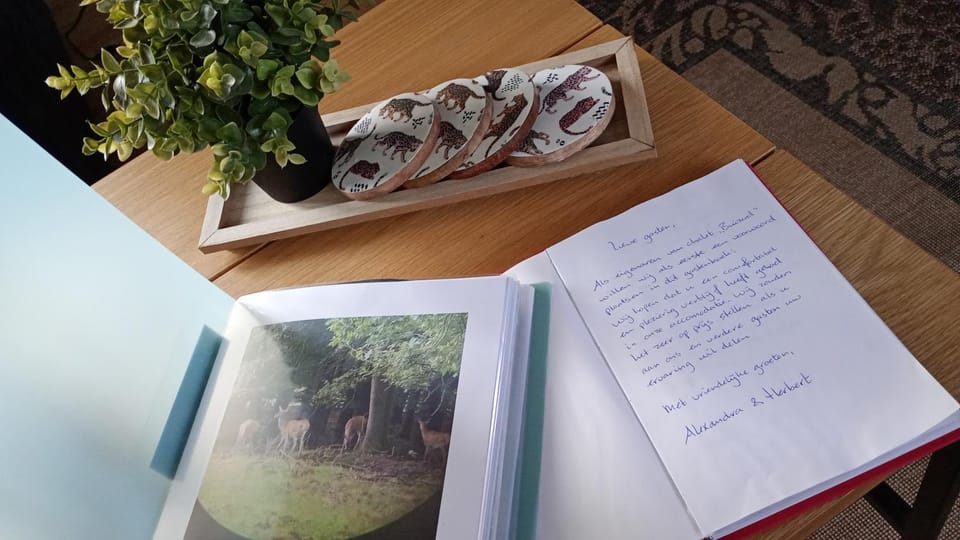 Lieve gasten,
Als eigenaren van chalet „Buizerd"
willen wij als eerste een voorwoord
plaatsen in dit gastenboek:
Wij hopen dat u een comfortabel
en plezierig verblijf heeft gehad
in onze accomodatie. Wij zouden
het zeer op prijs stellen als u
aan ons en verdere gasten uw
ervaring wil delen
Met vriendelijke groeten,
Alexandra & Herbert